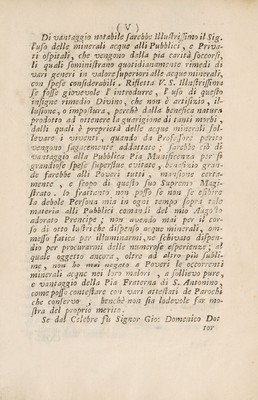 ( V )
Di vantaggio notabile sarebbe Illustrissimo il Sig.
l'uso delle minerali acque alli Pubblici, e Priva-
ti ospitali, che vengono dalla pia carità soccorsi,
li quali somministrano quotidianamente rimedi di
vari generi in valore superiori alle acque minerali,
con spese considerabili. Rifletta V. S. Illustrissima
se fosse giovevole l' introdurre, l' uso di questo
insigne rimedio Divino, che non è artifizio, il-
lusione, o impostura, perchè dalla benefica natura
prodotto ad ottenere la guarigione di tanti morbi,
dalli quali è proprietà delle acque minerali sol-
levare i viventi, quando da Professore perito
vengono saggiamente addattate; sarebbe ciò di
vantaggio alla Pubblica Pia Munificenza per sì
grandiose spese superflue evitate, gran-
de sarebbe alli Poveri tutti, mansione certa-
mente, e scopo di questo suo Supremo Magi-
strato. Io frattanto non posso se non se esibire
la debole Persona mia in ogni tempo sopra tale
materia alli Pubblici comandi del mio Augusto
adorato Prencipe; non avendo mai per il cor-
so di otto lustri che dispenso acque minerali, om-
messo fatica per illuminarmi, ne schivato dispen-
dio per procurarmi delle numerose esperienze; al
quale oggetto ancora, oltre ad altro più subli-
me, non ho mai negato a Poveri le occorrenti
minerali acque nei loro malori, a sollievo pure,
e vantaggio della Pia Fraterna di S. Antonino,
come posso contestare con vari attestati de Parochi
che conservo, benchè non sia lodevole far mo-
stra del proprio merito.
Se dal Celebre fu Signor Gio: Domenico Dot
tor